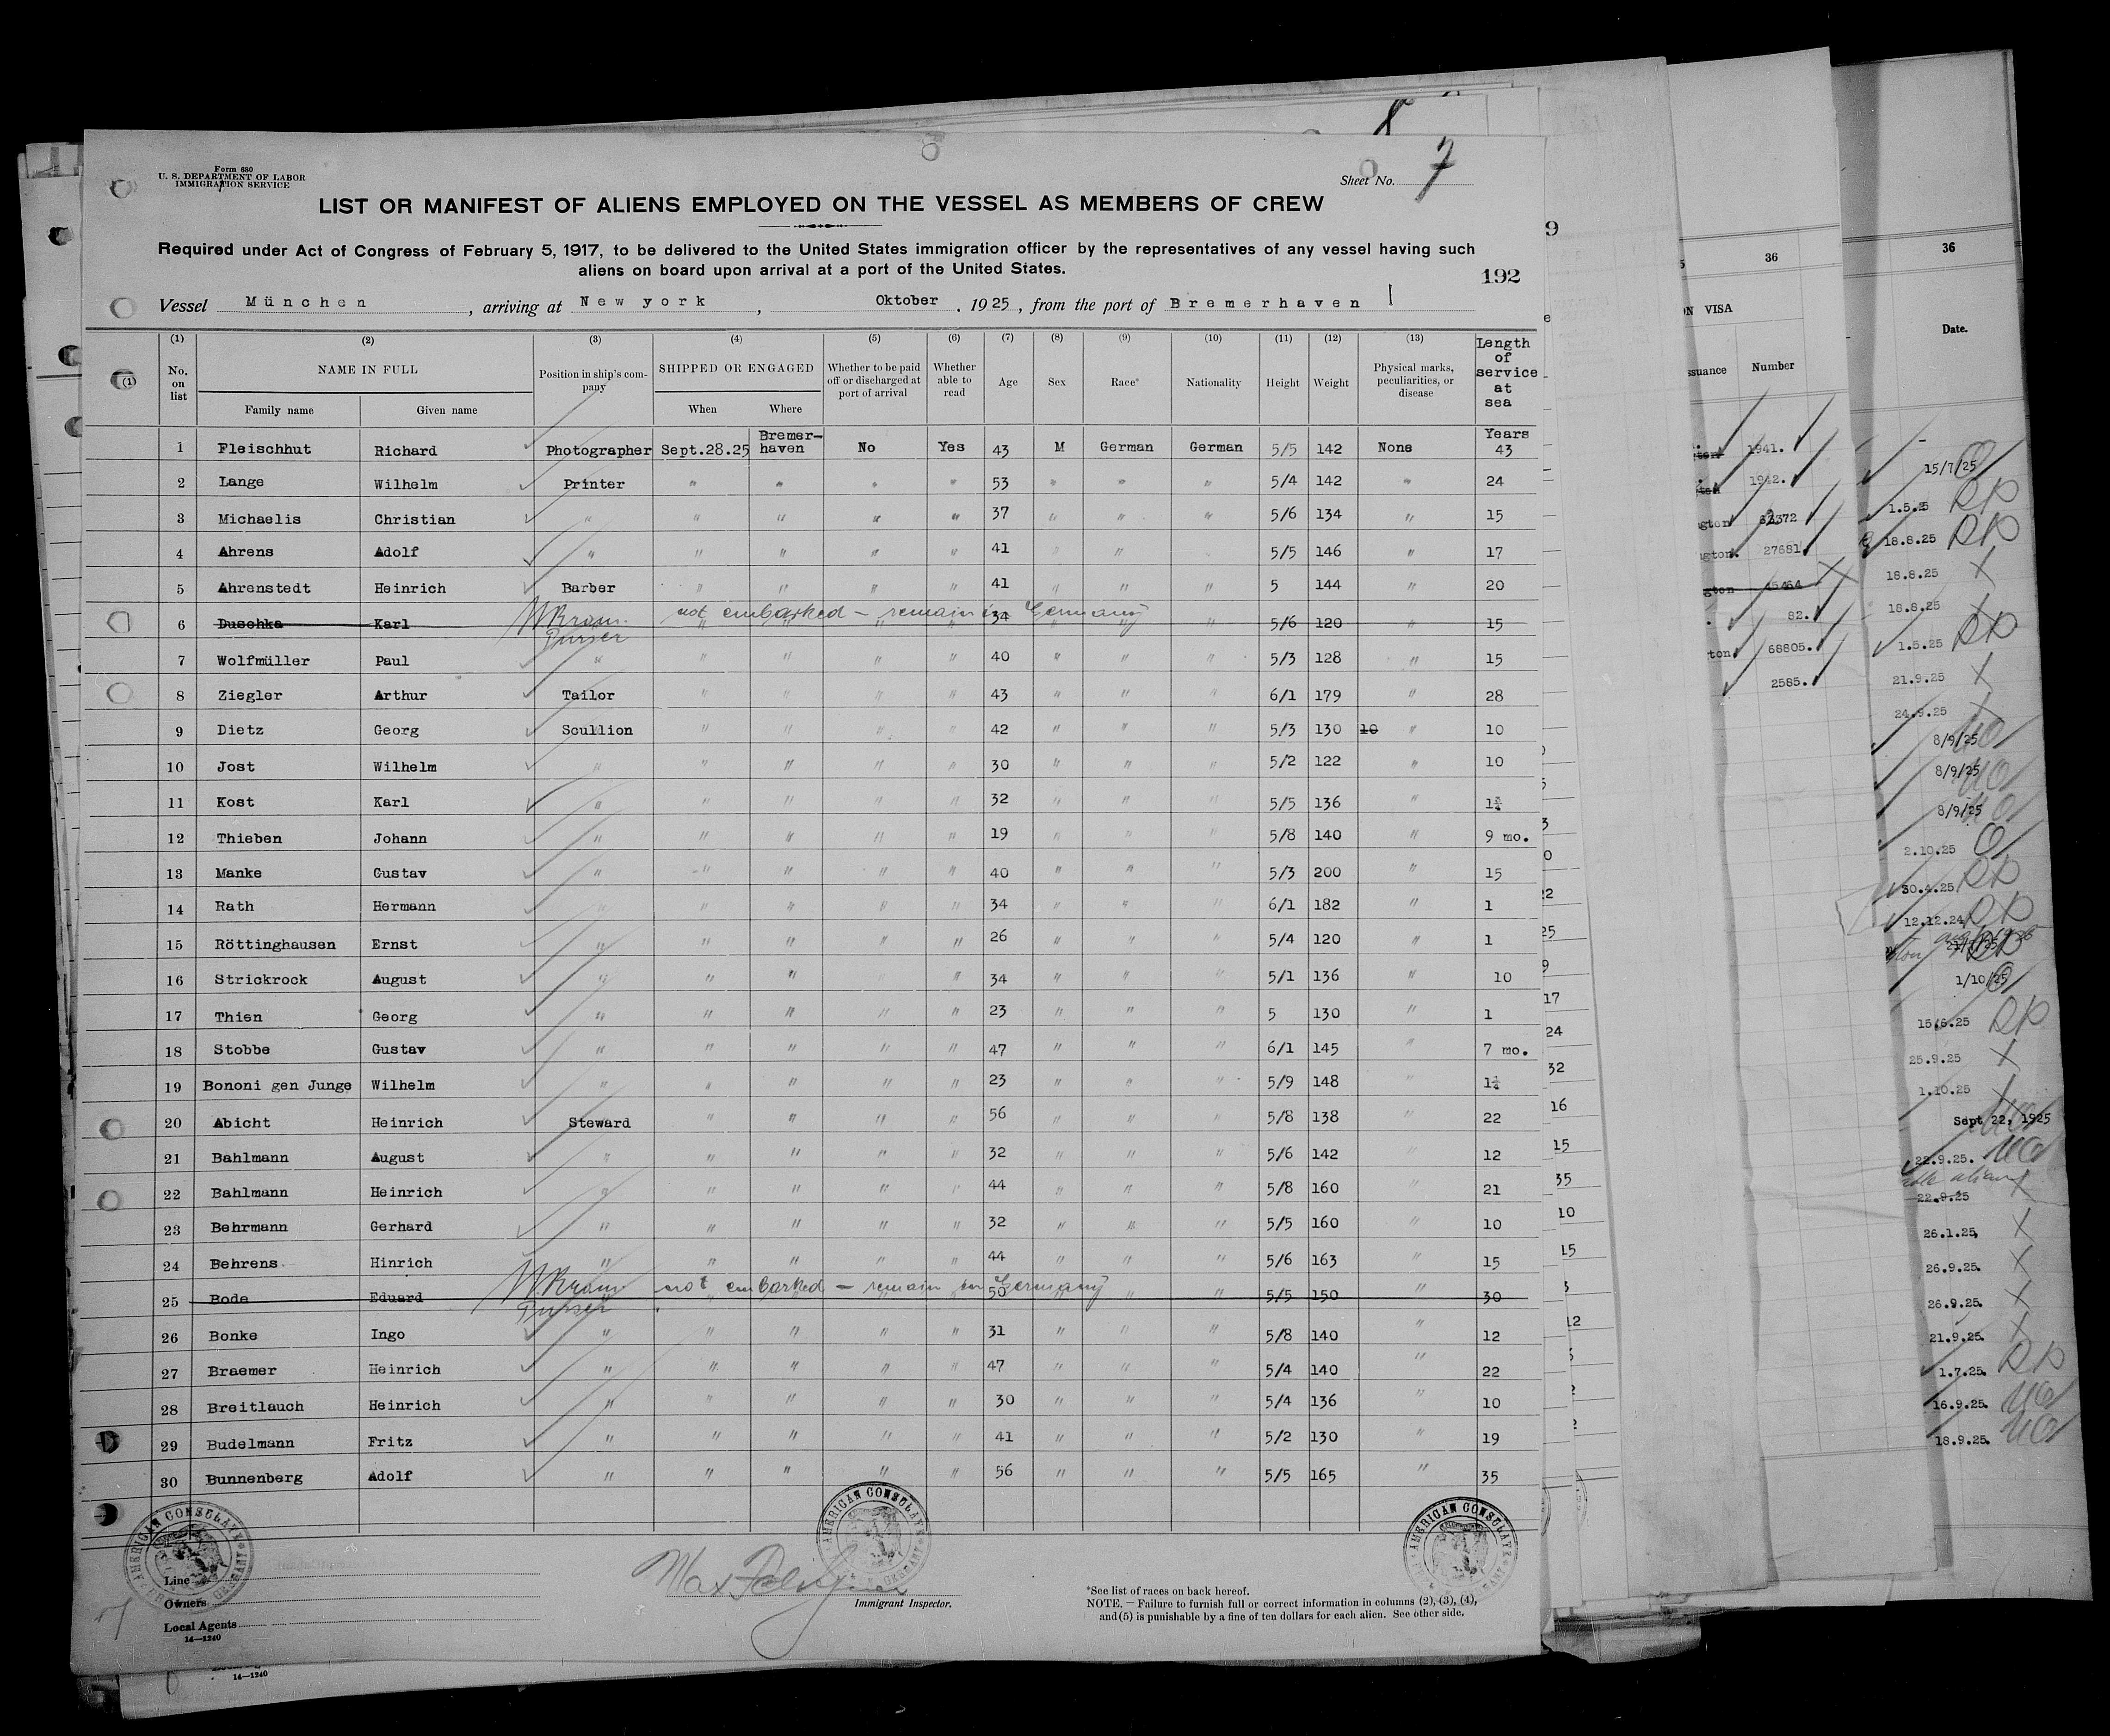 Form 680
U. S. DEPARTMENT OF LABOR
IMMIGRATION SERVICE
Sheet No. 7
LIST OR MANIFEST OF ALIENS EMPLOYED ON THE VESSEL AS MEMBERS OF CREW
Required under Act of Congress of February 5, 1917, to be delivered to the United States immigration officer by the representatives of any vessel having such
aliens on board upon arrival at a port of the United States.
192
Vessel München, arriving at New york, Oktober, 1925, from the port of Bremerhaven
(1) (2) (3) (4) (5) (6) (7) (8) (9) (10) (11) (12) (13) Length of service at sea
No. on list NAME IN FULL Position in ship's company SHIPPED OR ENGAGED Whether to be paid off or discharged at port of arrival Whether able to read Age Sex Race* Nationality Height Weight Physical marks, peculiarities, or disease
Family name Given name When Where
1 Fleischhut Richard Photographer Sept.28.25 Bremerhaven No Yes 43 M German German 5/5 142 None Years 43
2 Lange Wilhelm Printer " " " " 53 " " " 5/4 142 " 24
3 Michaelis Christian " " " " " 37 " " " 5/6 134 " 15
4 Ahrens Adolf " " " " " 41 " " 5/5 146 " 17
5 Ahrenstedt Heinrich Barber " " " " 41 " " " 5 144 " 20
not embarked — remain in Germany
6 Duschka Karl " " " " " 34 " " " 5/6 120 " 15
Purser
7 Wolfmüller Paul " " " " " 40 " " " 5/3 128 " 15
8 Ziegler Arthur Tailor " " " " 43 " " " 6/1 179 " 28
9 Dietz Georg Scullion " " " " 42 " " " 5/3 130 10 " 10
10 Jost Wilhelm " " " " " 30 " " " 5/2 122 " 10
11 Kost Karl " " " " " 32 " " " 5/5 136 "
12 Thieben Johann " " " " " 19 " " " 5/8 140 " 9 mo.
13 Manke Gustav " " " " " 40 " " " 5/3 200 " 15
14 Rath Hermann " " " " " 34 " " " 6/1 182 " 1
15 Röttinghausen Ernst " " " " " 26 " " " 5/4 120 " 1
16 Strickrock August " " " " " 34 " " " 5/1 136 " 10
17 Thien Georg " " " " " 23 " " " 5 130 " 1
18 Stobbe Gustav " " " " " 47 " " " 6/1 145 " 7 mo.
19 Bononi gen Junge Wilhelm " " " " " 23 " " " 5/9 148 "
20 Abicht Heinrich Steward " " " " 56 " " " 5/8 138 " 22
21 Bahlmann August " " " " " 32 " " " 5/6 142 " 12
22 Bahlmann Heinrich " " " " " 44 " " " 5/8 160 " 21
23 Behrmann Gerhard " " " " " 32 " " " 5/5 160 " 10
24 Behrens Hinrich " " " " " 44 " " " 5/6 163 " 15
not embarked — remain in Germany
25 Bode Eduard " " " " 50 " " " 5/5 150 " 30
Purser
26 Bonke Ingo " " " " " 31 " " " 5/8 140 " 12
27 Braemer Heinrich " " " " " 47 " " " 5/4 140 " 22
28 Breitlauch Heinrich " " " " " 30 " " " 5/4 136 " 10
29 Budelmann Fritz " " " " " 41 " " " 5/2 130 " 19
30 Bunnenberg Adolf " " " " " 56 " " " 5/5 165 " 35
AMERICAN CONSULATE GERMANY
AMERICAN CONSULATE GERMANY
AMERICAN CONSULATE
Line
Owners
Local Agents
14—1240
Max
Immigrant Inspector.
*See list of races on back hereof.
NOTE. — Failure to furnish full or correct information in columns (2), (3), (4),
and (5) is punishable by a fine of ten dollars for each alien. See other side.
14—1240
8
9
22
25
9
17
24
32
16
15
35
10
15
12
36
VISA
Number
1941.
1942.
27681
45464
82.
68805.
2585.
36
Date.
15/7/25
1.5.25
18.8.25
18.8.25
18.8.25
1.5.25
21.9.25
24.9.25
8/9/25
8/9/25
8/9/25
2.10.25
30.4.25
12.12.24
1/10/25
15.6.25
25.9.25
1.10.25
Sept 22, 1925
22.9.25.
22.9.25
26.1.25,
26.9.25.
26.9.25.
21.9.25.
1.7.25.
16.9.25.
18.9.25.